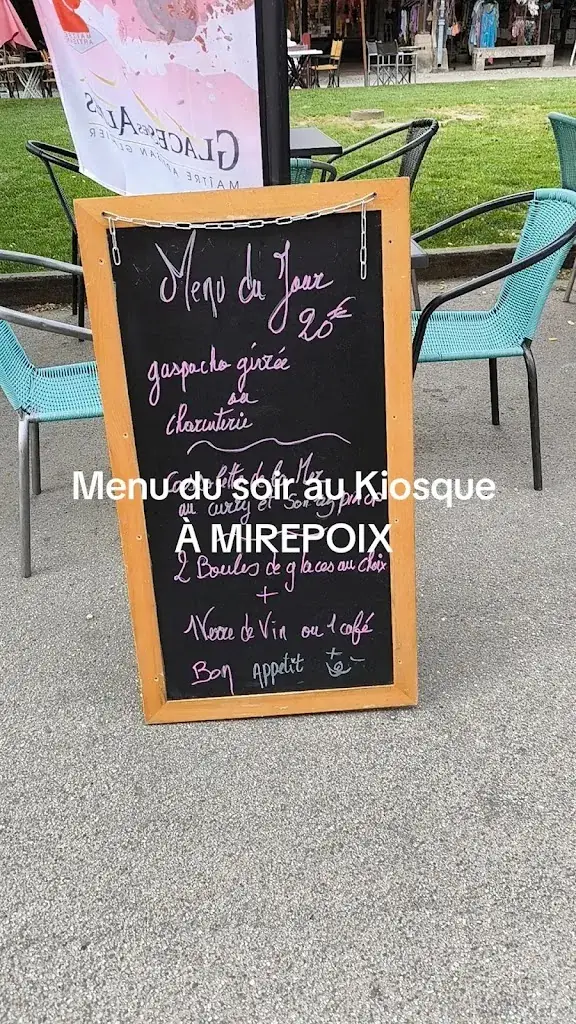 GLACES DES ALPS
MAÎTRE ARTISAN GLACIER
Menu du Jour
20€
gaspacho givrée
ou
charcuterie
de la Mer
au curry et son
Menu du soir au Kiosque
À MIREPOIX
2 Boules de glaces au choix
+
1 Verre de Vin ou 1 café
Bon Appetit